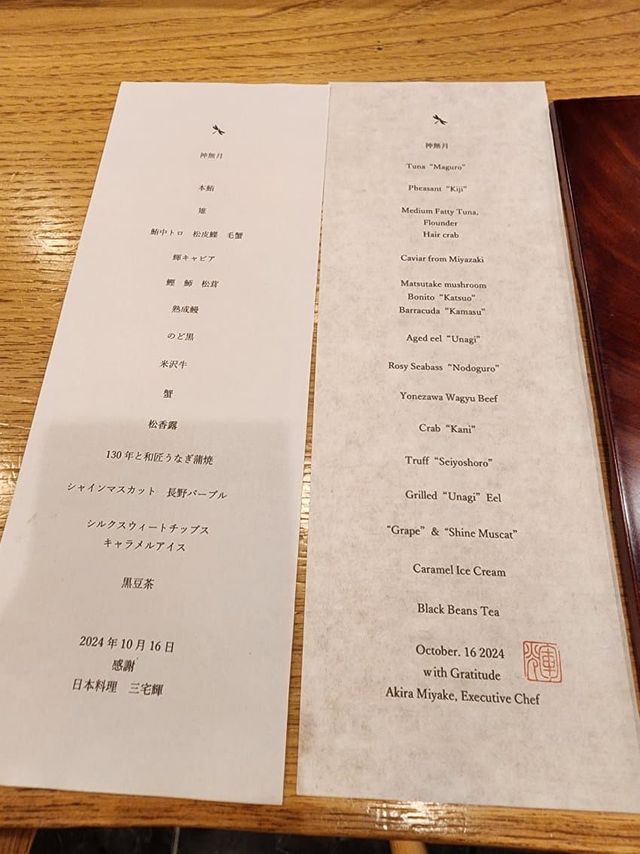 神無月
本鮪
雉
鮪中トロ 松皮鰈 毛蟹
輝キャビア
鰹 鰤 松茸
熟成鰻
のど黒
米沢牛
蟹
松香露
130年と和匠うなぎ蒲焼
シャインマスカット 長野パープル
シルクスウィートチップス
キャラメルアイス
黒豆茶
2024年10月16日
感謝
日本料理 三宅輝
神無月
Tuna “Maguro”
Pheasant “Kiji”
Medium Fatty Tuna,
Flounder
Hair crab
Caviar from Miyazaki
Matsutake mushroom
Bonito “Katsuo”
Barracuda “Kamasu”
Aged eel “Unagi”
Rosy Seabass “Nodoguro”
Yonezawa Wagyu Beef
Crab “Kani”
Truff “Seiyoshoro”
Grilled “Unagi” Eel
“Grape” & “Shine Muscat”
Caramel Ice Cream
Black Beans Tea
October. 16 2024
with Gratitude
Akira Miyake, Executive Chef
輝